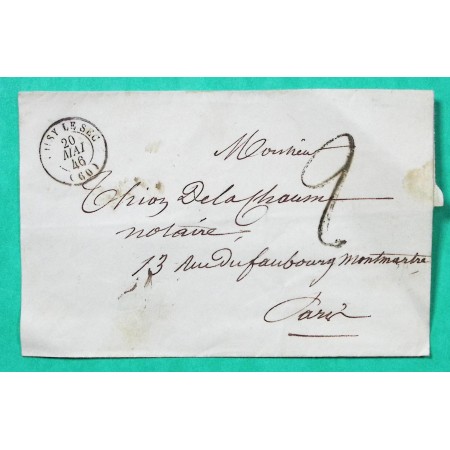 NOISY LE SEC
20
MAI
46
(60)
2
Monsieur
Thion Delachaume
notaire,
13 rue du faubourg montmartre
Paris